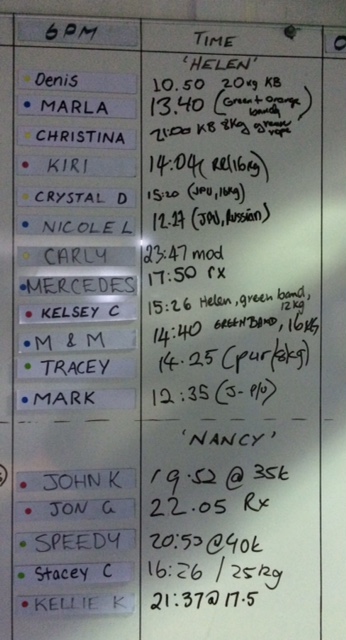 6PM TIME
'HELEN'
Denis 10.50 20kg KB
MARLA 13.40 (Green + Orange band)
CHRISTINA 21:00 KB 8kg green rope
KIRI 14:04 (RE/16kg)
CRYSTAL D 15:20 (JPU, 16kg)
NICOLE L 12.17 (JPU, Russian)
CARLY 23:47 mod
MERCEDES 17:50 rx
KELSEY C 15:26 Helen, green band, 12kg
M & M 14:40 GREEN BAND, 16KG
TRACEY 14.25 (pur/8kg)
MARK 12:35 (J-P/U)
'NANCY'
JOHN K 19.52 @ 35k
JON G 22.05 Rx
SPEEDY 20:53 @ 40k
Stacey C 16:26 / 25kg
KELLIE K 21:37 @ 17.5